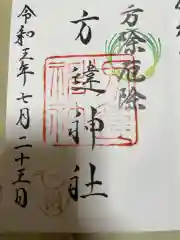 方除厄除
方違神社
令和三年七月二十五日